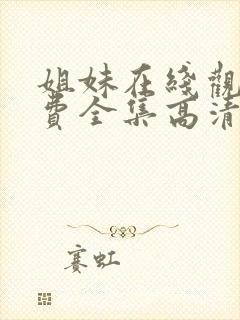 姐妹在线觀
費全集高清
赛虹